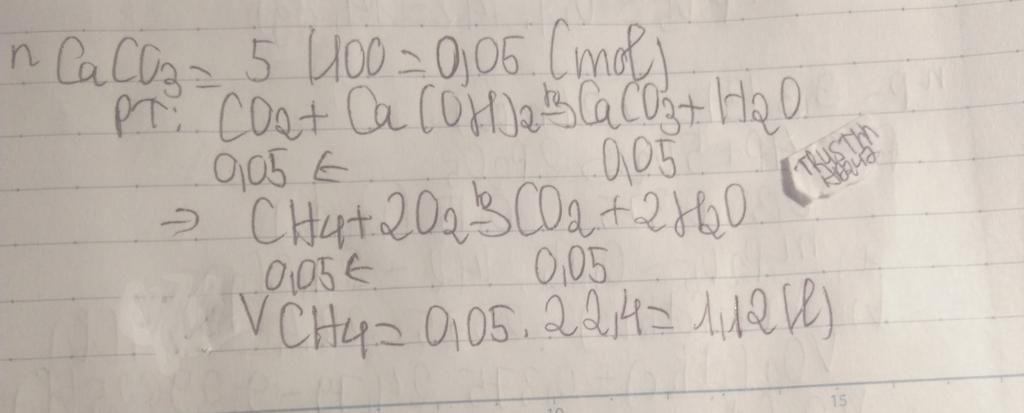 n CaCO3 = 5 / 100 = 0,05 (mol)
PT: CO2 + Ca(OH)2 → CaCO3 + H2O
0,05 ← 0,05
⇒ CH4 + 2O2 → CO2 + 2H2O
0,05 ← 0,05
V CH4 = 0,05 . 22,4 = 1,12 (l)
15